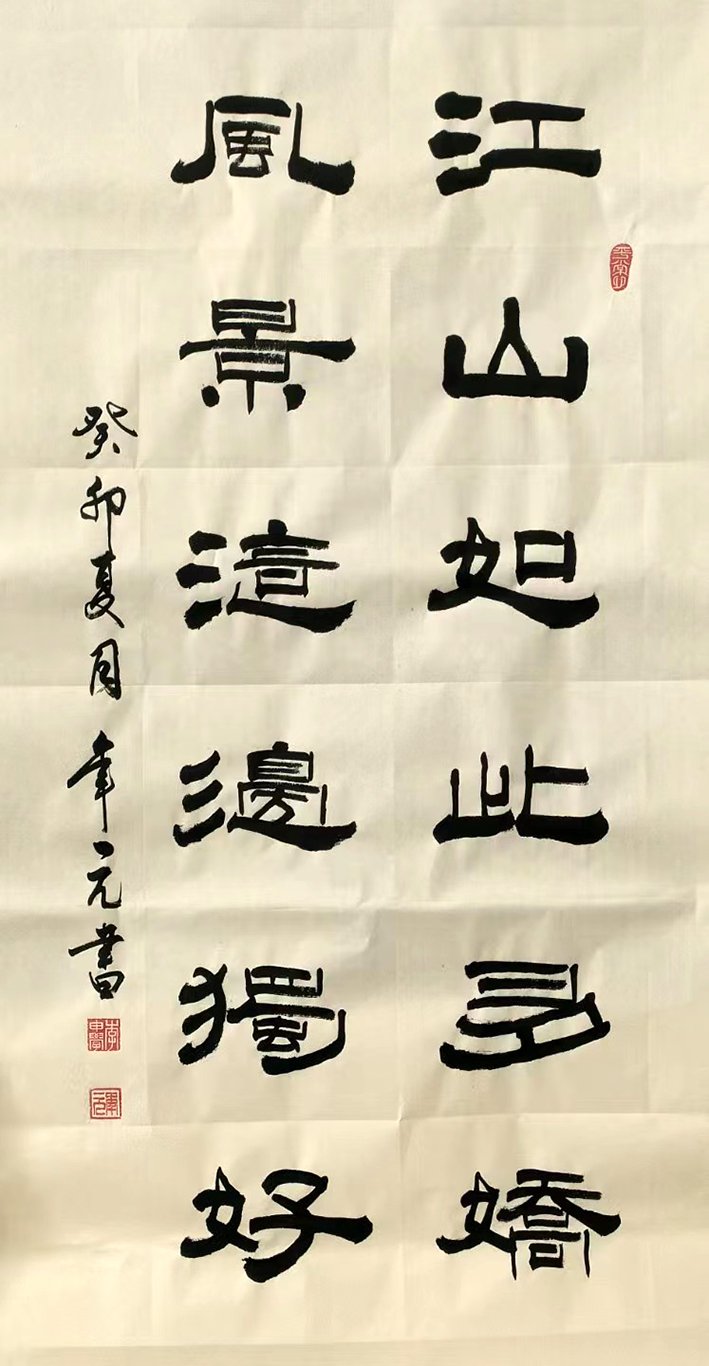 江山如此多嬌
風景這邊獨好
癸卯夏月元書